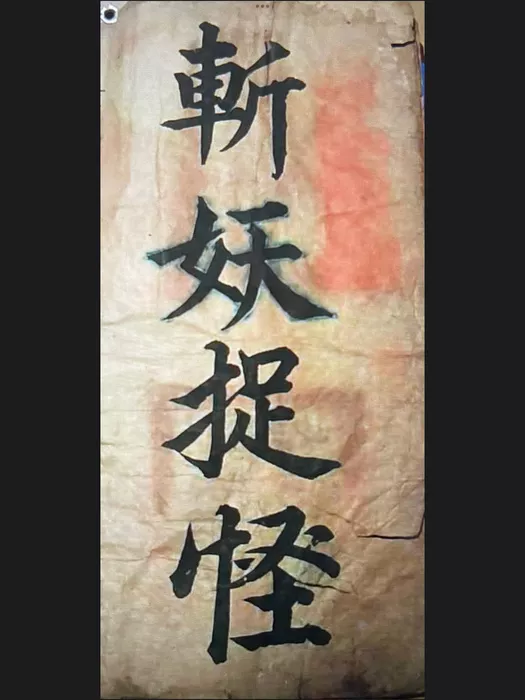 斬妖捉怪